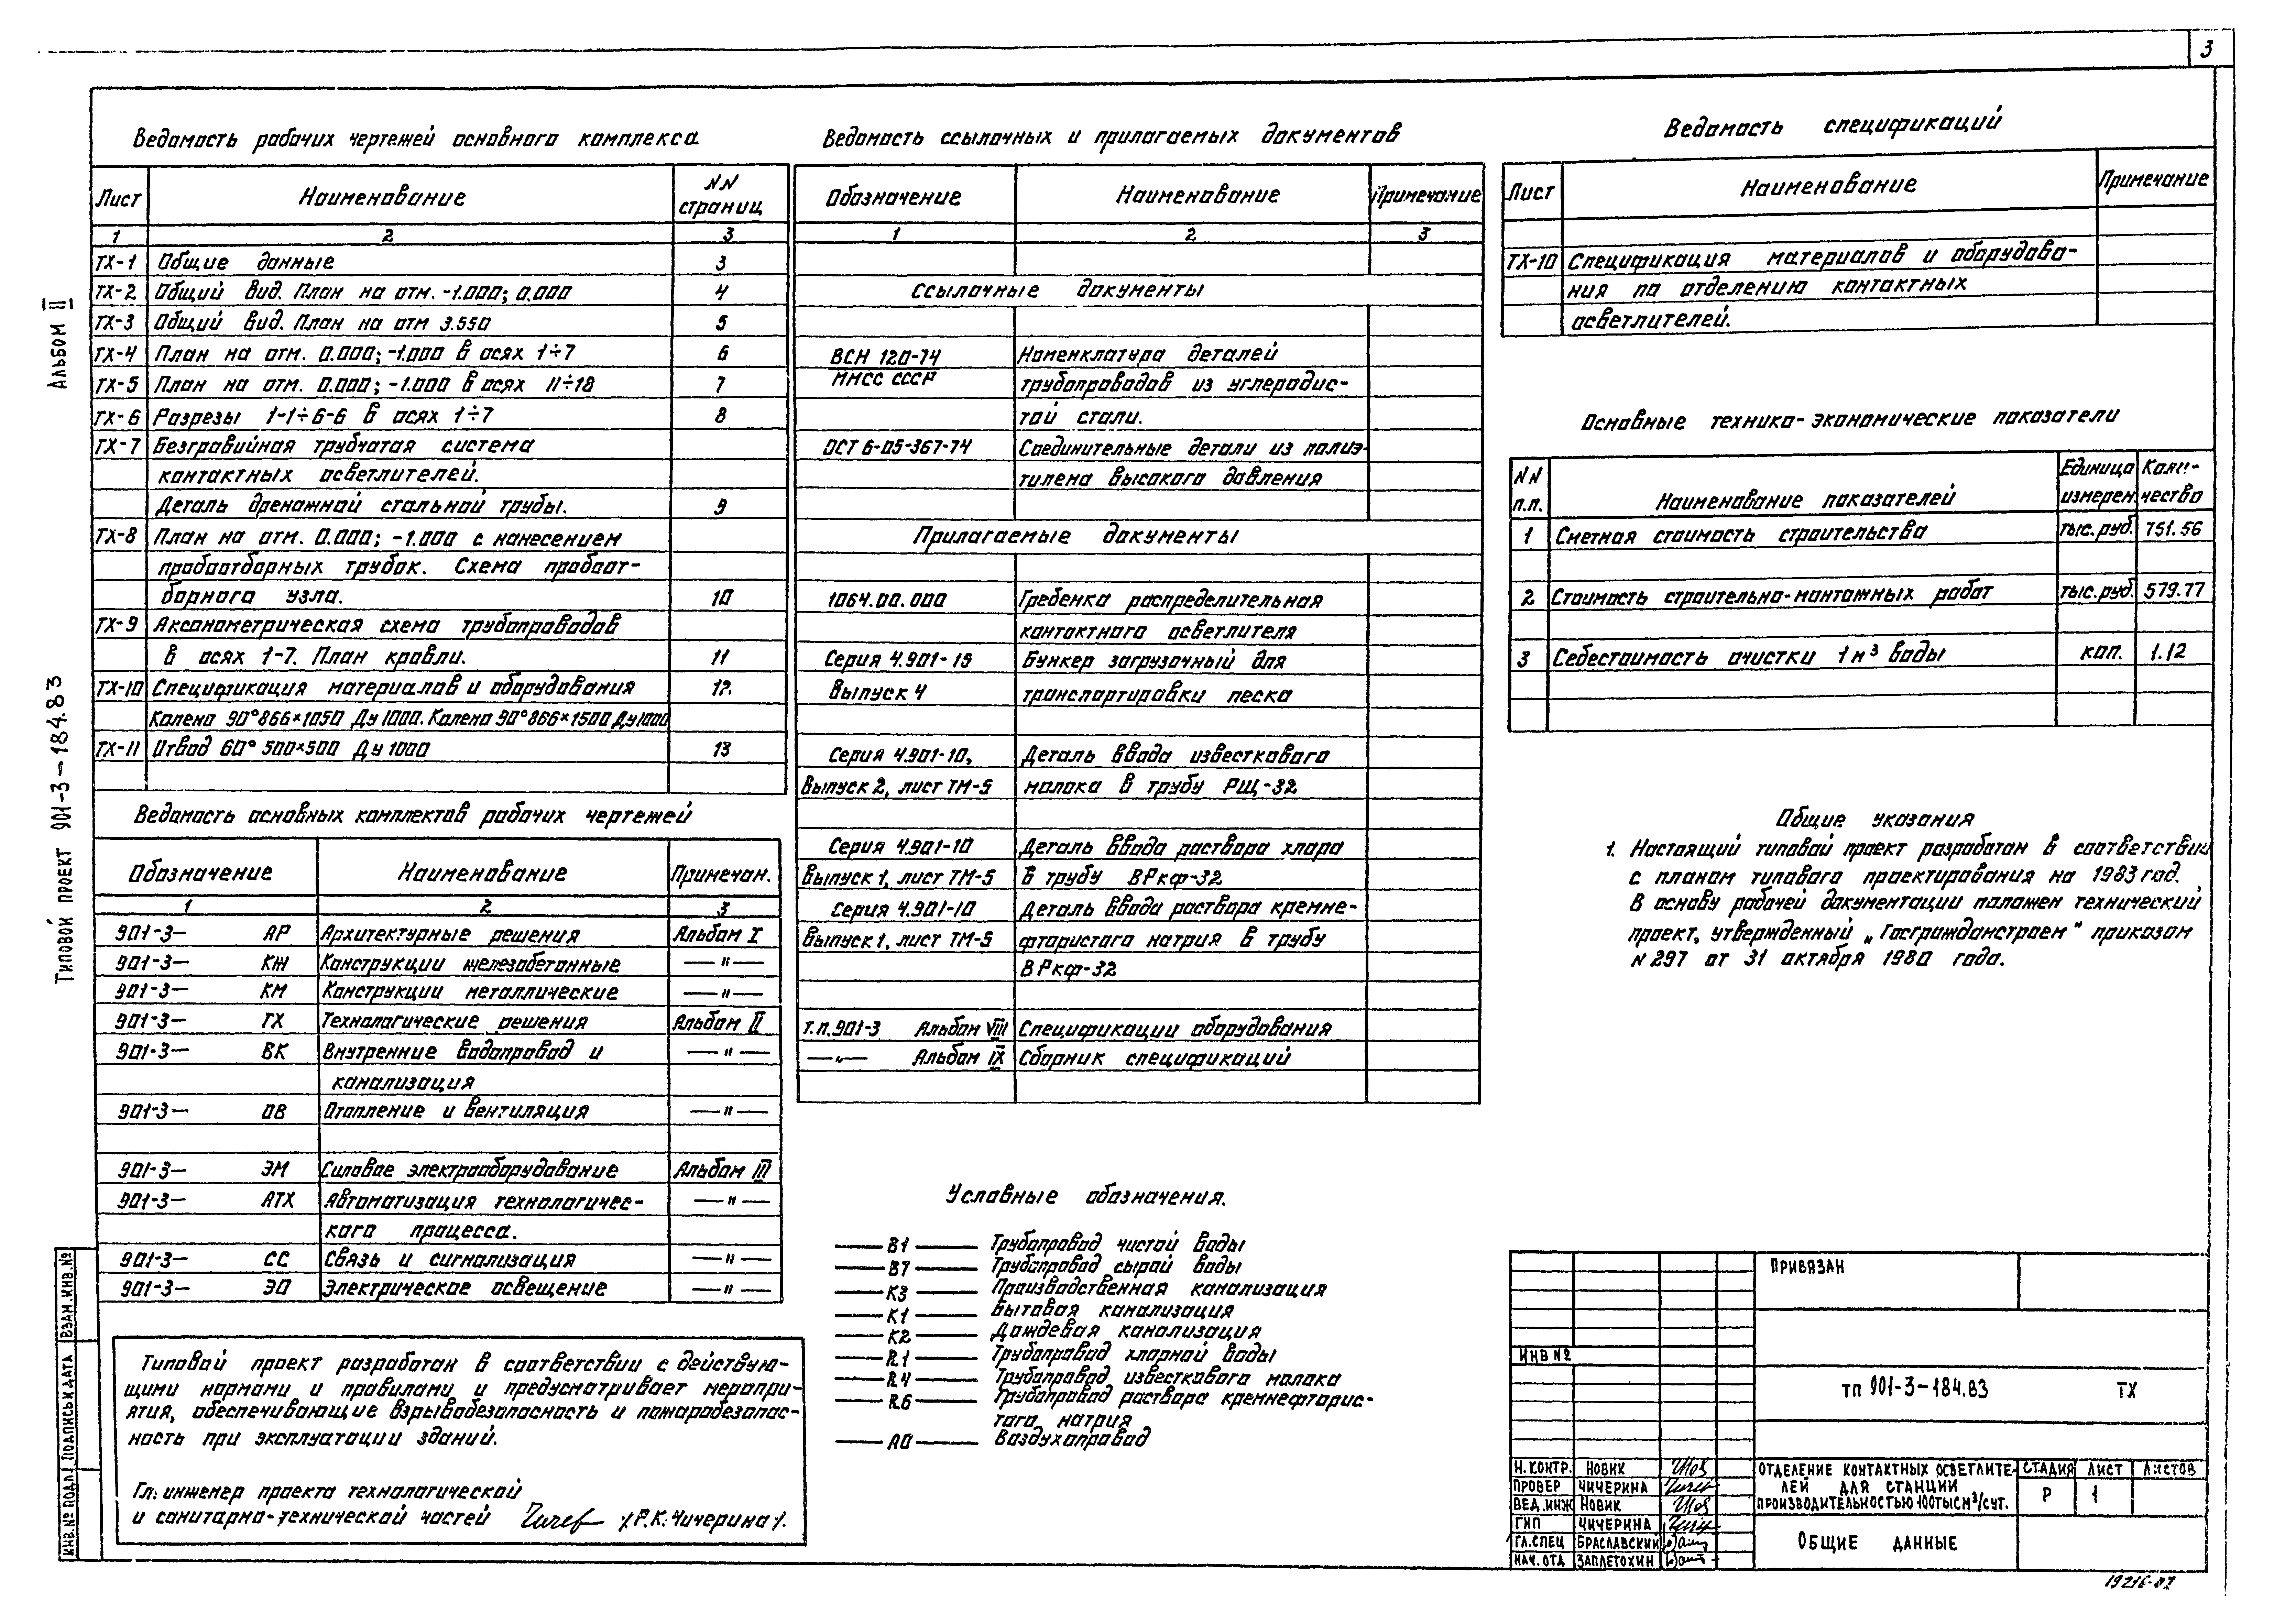 3
Альбом II
Типовой проект 901-3-184.83
Ведомость рабочих чертежей основного комплекса
Лист Наименование NN страниц
1 2 3
ТХ-1 Общие данные 3
ТХ-2 Общий вид. План на отм. -1.000; 0.000 4
ТХ-3 Общий вид. План на отм 3.550 5
ТХ-4 План на отм. 0.000; -1.000 в осях 1÷7 6
ТХ-5 План на отм. 0.000; -1.000 в осях 11÷18 7
ТХ-6 Разрезы 1-1÷6-6 в осях 1÷7 8
ТХ-7 Безгравийная трубчатая система
контактных осветлителей.
Деталь дренажной стальной трубы. 9
ТХ-8 План на отм. 0.000; -1.000 с нанесением
пробоотборных трубок. Схема пробоот-
борного узла. 10
ТХ-9 Аксонометрическая схема трубопроводов
в осях 1-7. План кровли. 11
ТХ-10 Спецификация материалов и оборудования 12.
Колено 90° 866×1050 Ду 1000. Колено 90° 866×1500 Ду 1000
ТХ-11 Отвод 60° 500×500 Ду 1000 13
Ведомость основных комплектов рабочих чертежей
Обозначение Наименование Примечан.
1 2 3
901-3— АР Архитектурные решения Альбом I
901-3— КЖ Конструкции железобетонные —"—
901-3— КМ Конструкции металлические —"—
901-3— ТХ Технологические решения Альбом II
901-3— ВК Внутренние водопровод и —"—
канализация
901-3— ОВ Отопление и вентиляция —"—
901-3— ЭМ Силовое электрооборудование Альбом III
901-3— АТХ Автоматизация технологичес- —"—
кого процесса.
901-3— СС Связь и сигнализация —"—
901-3— ЭО Электрическое освещение —"—
Типовой проект разработан в соответствии с действую-
щими нормами и правилами и предусматривает меропри-
ятия, обеспечивающие взрывобезопасность и пожаробезопас-
ность при эксплуатации зданий.
Гл. инженер проекта технологической
и санитарно-технической частей /Р.К. Чичерина/.
Ведомость ссылочных и прилагаемых документов
Обозначение Наименование Примечание
1 2 3
Ссылочные документы
ВСН 120-74 Номенклатура деталей
ММСС СССР трубопроводов из углеродис-
той стали.
ОСТ 6-05-367-74 Соединительные детали из полиэ-
тилена высокого давления
Прилагаемые документы
1064.00.000 Гребенка распределительная
контактного осветлителя
Серия 4.901-15 Бункер загрузочный для
Выпуск 4 транспортировки песка
Серия 4.901-10, Деталь ввода известкового
Выпуск 2, лист ТМ-5 молока в трубу РЩ-32
Серия 4.901-10 Деталь ввода раствора хлора
Выпуск 1, лист ТМ-5 в трубу ВРкф-32
Серия 4.901-10 Деталь ввода раствора кремне-
Выпуск 1, лист ТМ-5 фтористого натрия в трубу
ВРкф-32
т.п.901-3 Альбом VIII Спецификации оборудования
—"— Альбом IX Сборник спецификаций
Условные обозначения.
В1 Трубопровод чистой воды
В7 Трубопровод сырой воды
К3 Производственная канализация
К1 Бытовая канализация
К2 Дождевая канализация
R1 Трубопровод хлорной воды
R4 Трубопровод известкового молока
R6 Трубопровод раствора кремнефторис-
того натрия
А0 Воздухопровод
Ведомость спецификаций
Лист Наименование Примечание
ТХ-10 Спецификация материалов и оборудова-
ния по отделению контактных
осветлителей.
Основные технико-экономические показатели
NN п.п. Наименование показателей Единица измерен. Коли-чество
1 Сметная стоимость строительства тыс. руб. 751.56
2 Стоимость строительно-монтажных работ тыс. руб. 579.77
3 Себестоимость очистки 1 м³ воды коп. 1.12
Общие указания
1. Настоящий типовой проект разработан в соответствии
с планом типового проектирования на 1983 год.
В основу рабочей документации положен технический
проект, утвержденный „Госгражданстроем" приказом
N 297 от 31 октября 1980 года.
Привязан
Инв №
ТП 901-3-184.83 ТХ
Н. контр. Новик
Провер Чичерина
Вед. инж Новик
ГИП Чичерина
Гл. спец Браславский
Нач. отд Заплетохин
Отделение контактных осветлите-
лей для станции
производительностью 100 тыс м³/сут.
Стадия Лист Листов
Р 1
Общие данные
Взам. инв. №
Подпись и дата
Инв. № подл.
19216-02